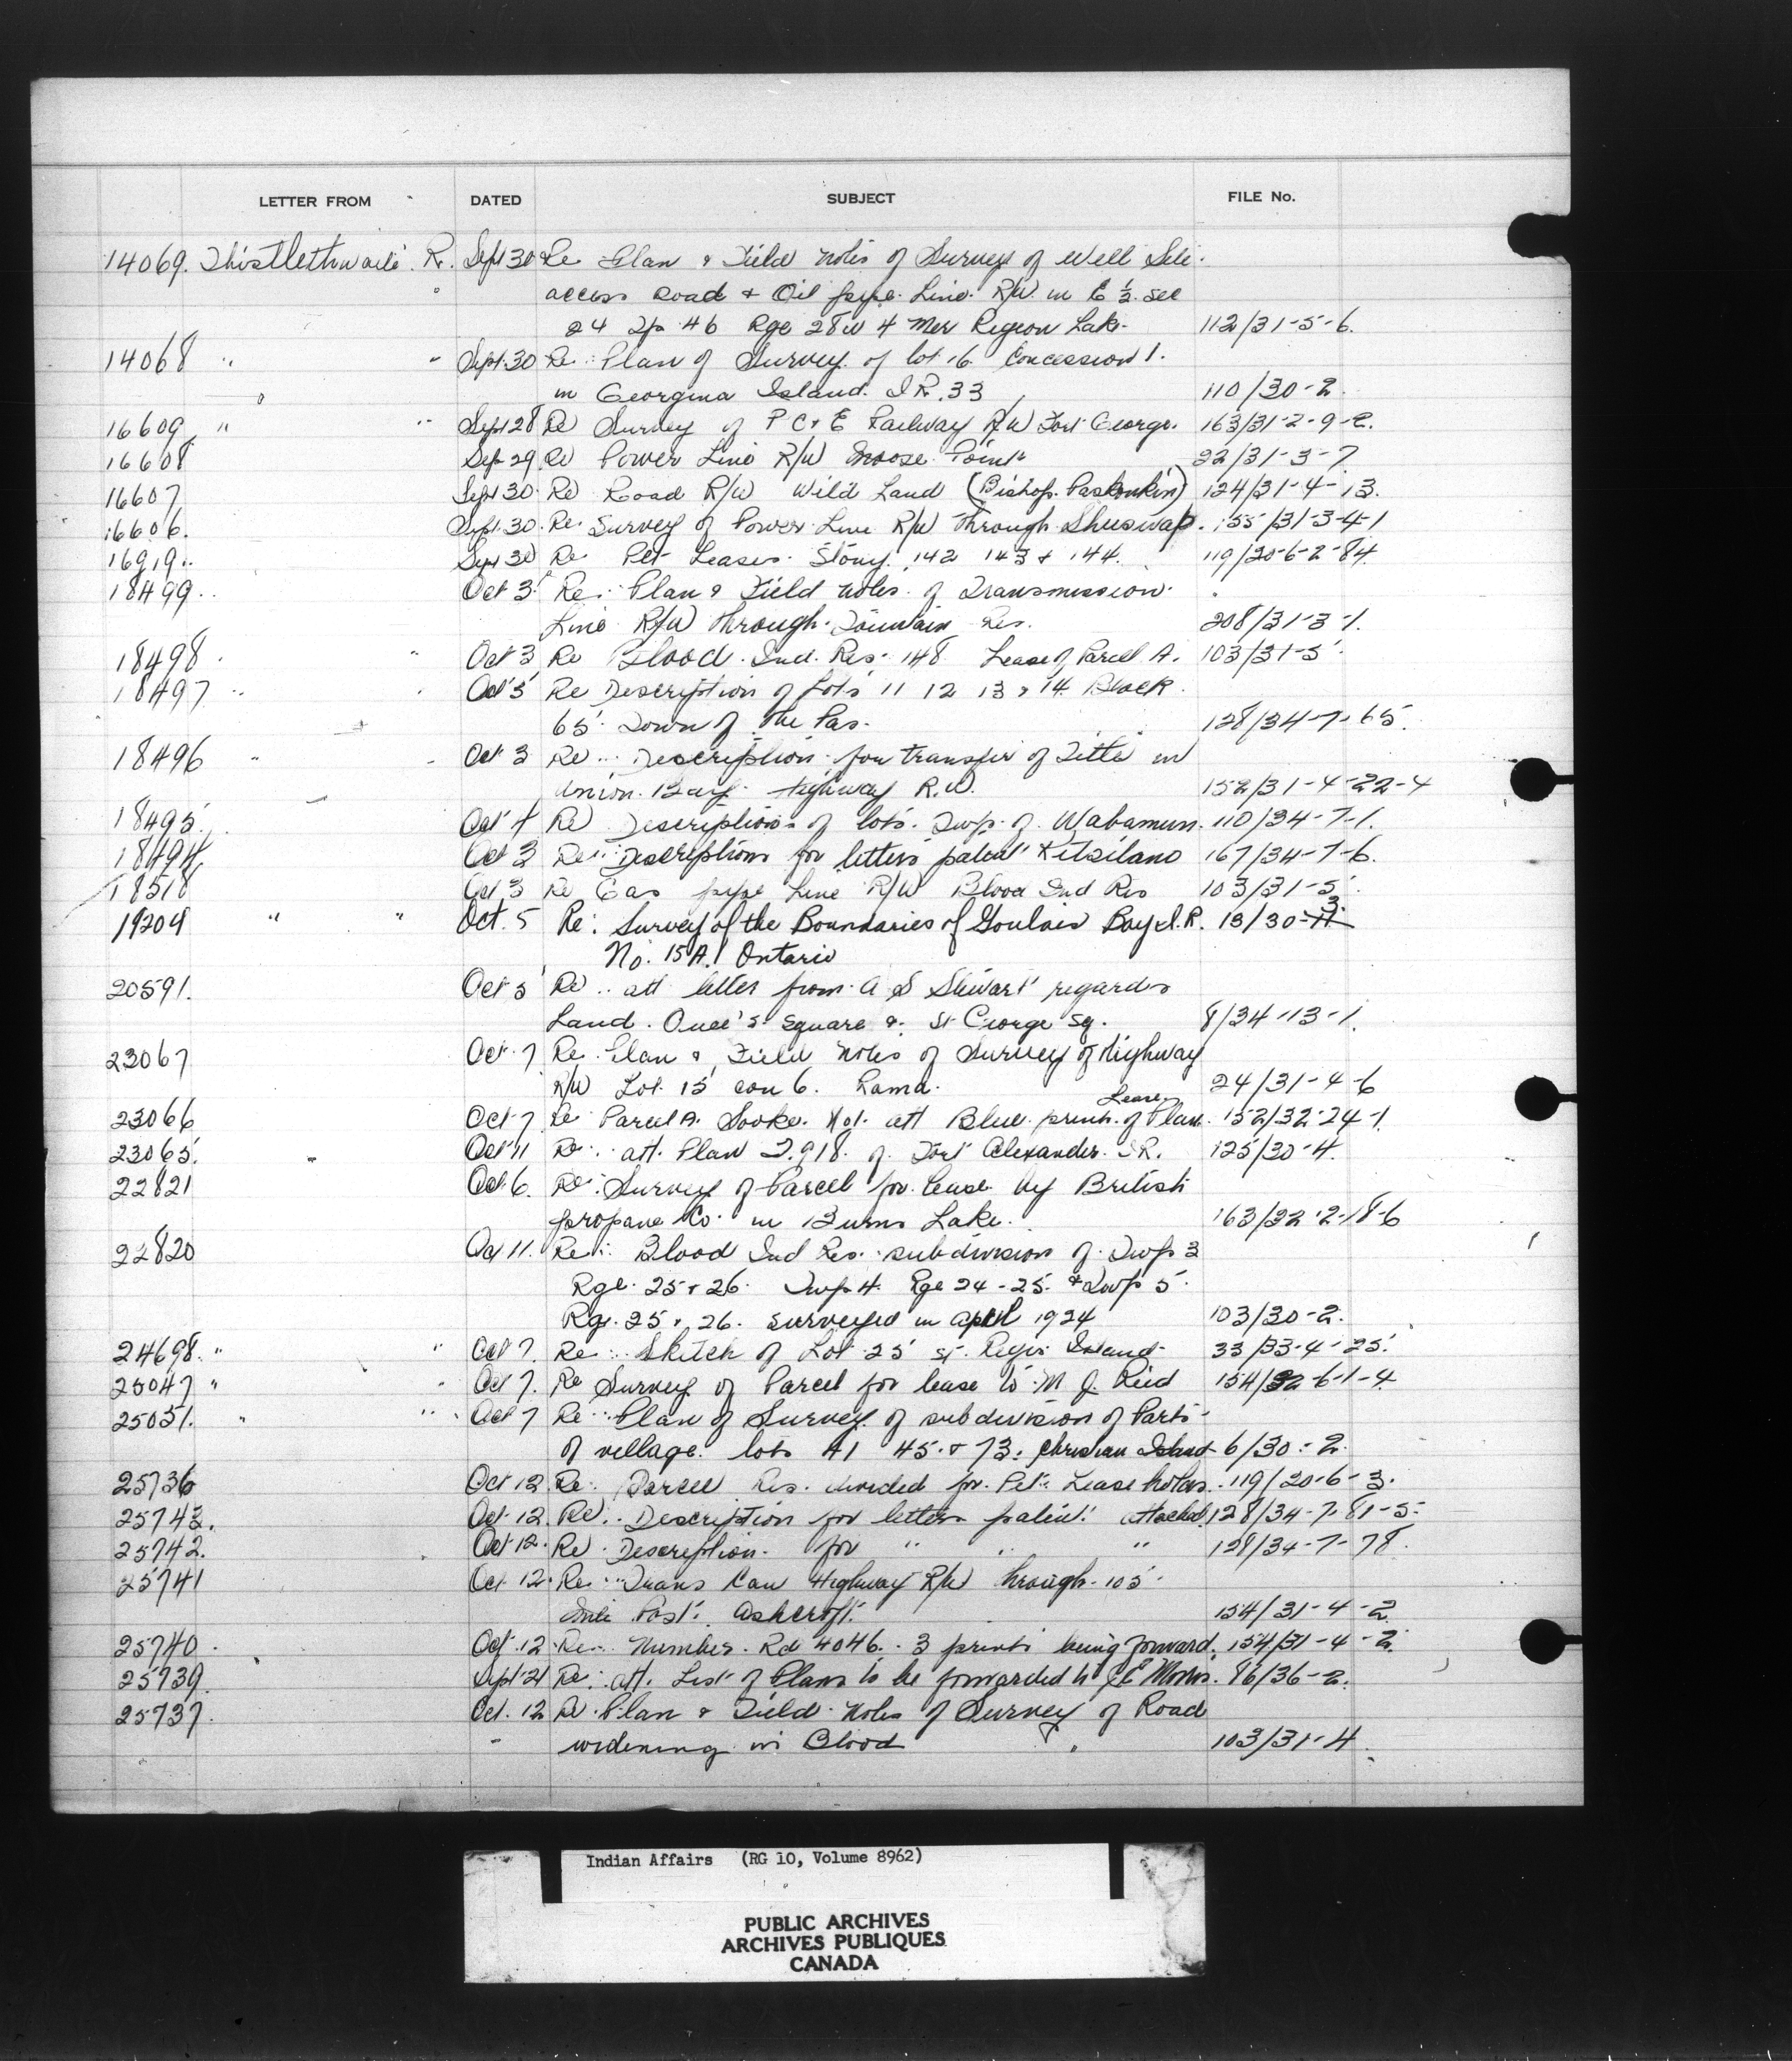 LETTER FROM DATED SUBJECT FILE No.
14069. Thistlethwaite. R. Sept 30 Re Plan & Field notes of Survey of Well Site.
access Road & Oil pipe. Line. R/W. in E ½ sec
24 Tp 46 Rge 28 W 4 Mer Pigeon Lake. 112/31-5-6.
14068 " " Sept. 30 Re: Plan of Survey. of lot 16 Concession 1.
in Georgina Island. I.R. 33 110/30-2.
16609 " " Sept 28 Re Survey of P C & E Railway R/W Fort George. 163/31-2-9-2.
16608 Sep 29. Re Power Line R/W Moose Point 22/31-3-7
16607 Sept 30. Re Road R/W Wild Land (Bishop. ) 124/31-4-13.
16606. Sept. 30. Re: Survey of Power Line R/W through Shuswap. 155/31-3-4-1
16919.. Sept 30 Re Pet Leases. Stony. 142 143 & 144. 119/20-6-2-84.
18499.. Oct 3 Re: Plan & Field notes. of Transmission.
Line R/W through. Fountain Res. 208/31-3-1.
18498. " Oct 3 Re Blood. Ind. Res. 148 Lease of Parcel A. 103/31-5.
18497 " Oct 5 Re Description of Lots 11 12 13 & 14 Block
65. Town of The Pas. 128/34-7-65.
18496 " Oct 3 Re.. Description for transfer of Title in
Union. Bay. Highway R.W. 152/31-4-22-4
18495. Oct 4 Re Descriptions of lots. Twp. of Wabamun. 110/34-7-1.
18494 Oct 3 Re: Descriptions for letters patent Kitsilano 167/34-7-6.
18518 Oct 3 Re Gas pipe Line R/W Blood Ind Res 103/31-5.
19204 " " Oct. 5 Re: Survey of the Boundaries of Goulais Bay I.R. 13/30-3.
No. 15A. Ontario
20591. Oct 5 Re.. att letter from A S Stewart regards
Land. Queen's Square & St George Sq. 8/34-13-1.
23067 Oct. 7 Re. Plan & Field notes of Survey of Highway
R/W Lot. 15 con 6. Rama. 24/31-4-6
Lease
23066 Oct 7 Re Parcel A. Sooke. No 1. att Blue prints of Plan. 152/32-24-1.
23065. " Oct 11 Re: att. Plan T.918. of Fort Alexander. I.R. 125/30-4.
22821 Oct. 6. Re: Survey of Parcel for lease by British
propane Co. in Burns Lake. 163/32-2-18-6
22820 Oct 11. Re: Blood Ind Res. subdivision of Twp 3
Rge. 25 & 26. Twp 4. Rge 24-25. & Twp 5.
Rge. 25 & 26. surveyed in April 1924 103/30-2.
24698. " " Oct 7. Re: Sketch of Lot 25 St. Regis Island 33/33-4-25.
25047 " " Oct 7. Re Survey of Parcel for lease to M J. Reid 154/32-6-1-4.
25051. " " Oct 7 Re: Plan of Survey. of subdivision of Parts
of village. lots 41 45 & 73. Christian Island 6/30-2.
25736 Oct 12 Re: Res. divided for. Pet. Lease 119/20-6-3.
25743. Oct. 12. Re: Description for letters patent. attached 128/34-7-81-5.
25742. Oct 12. Re. Description. for " " " 128/34-7-78.
25741 Oct 12. Re: Trans Can Highway R/W through 105
mile Post. Ashcroft. 154/31-4-2
25740. Oct. 12 Re.. Number. Rd 4046. 3 prints being forward. 154/31-4-2.
25739. Sept 21 Re: att. List of Plans to be forwarded to 86/36-2.
25737. Oct. 12 Re. Plan & Field Notes of Survey of Road
widening in Blood " 103/31-4.
Indian Affairs (RG 10, Volume 8962)
PUBLIC ARCHIVES
ARCHIVES PUBLIQUES
CANADA